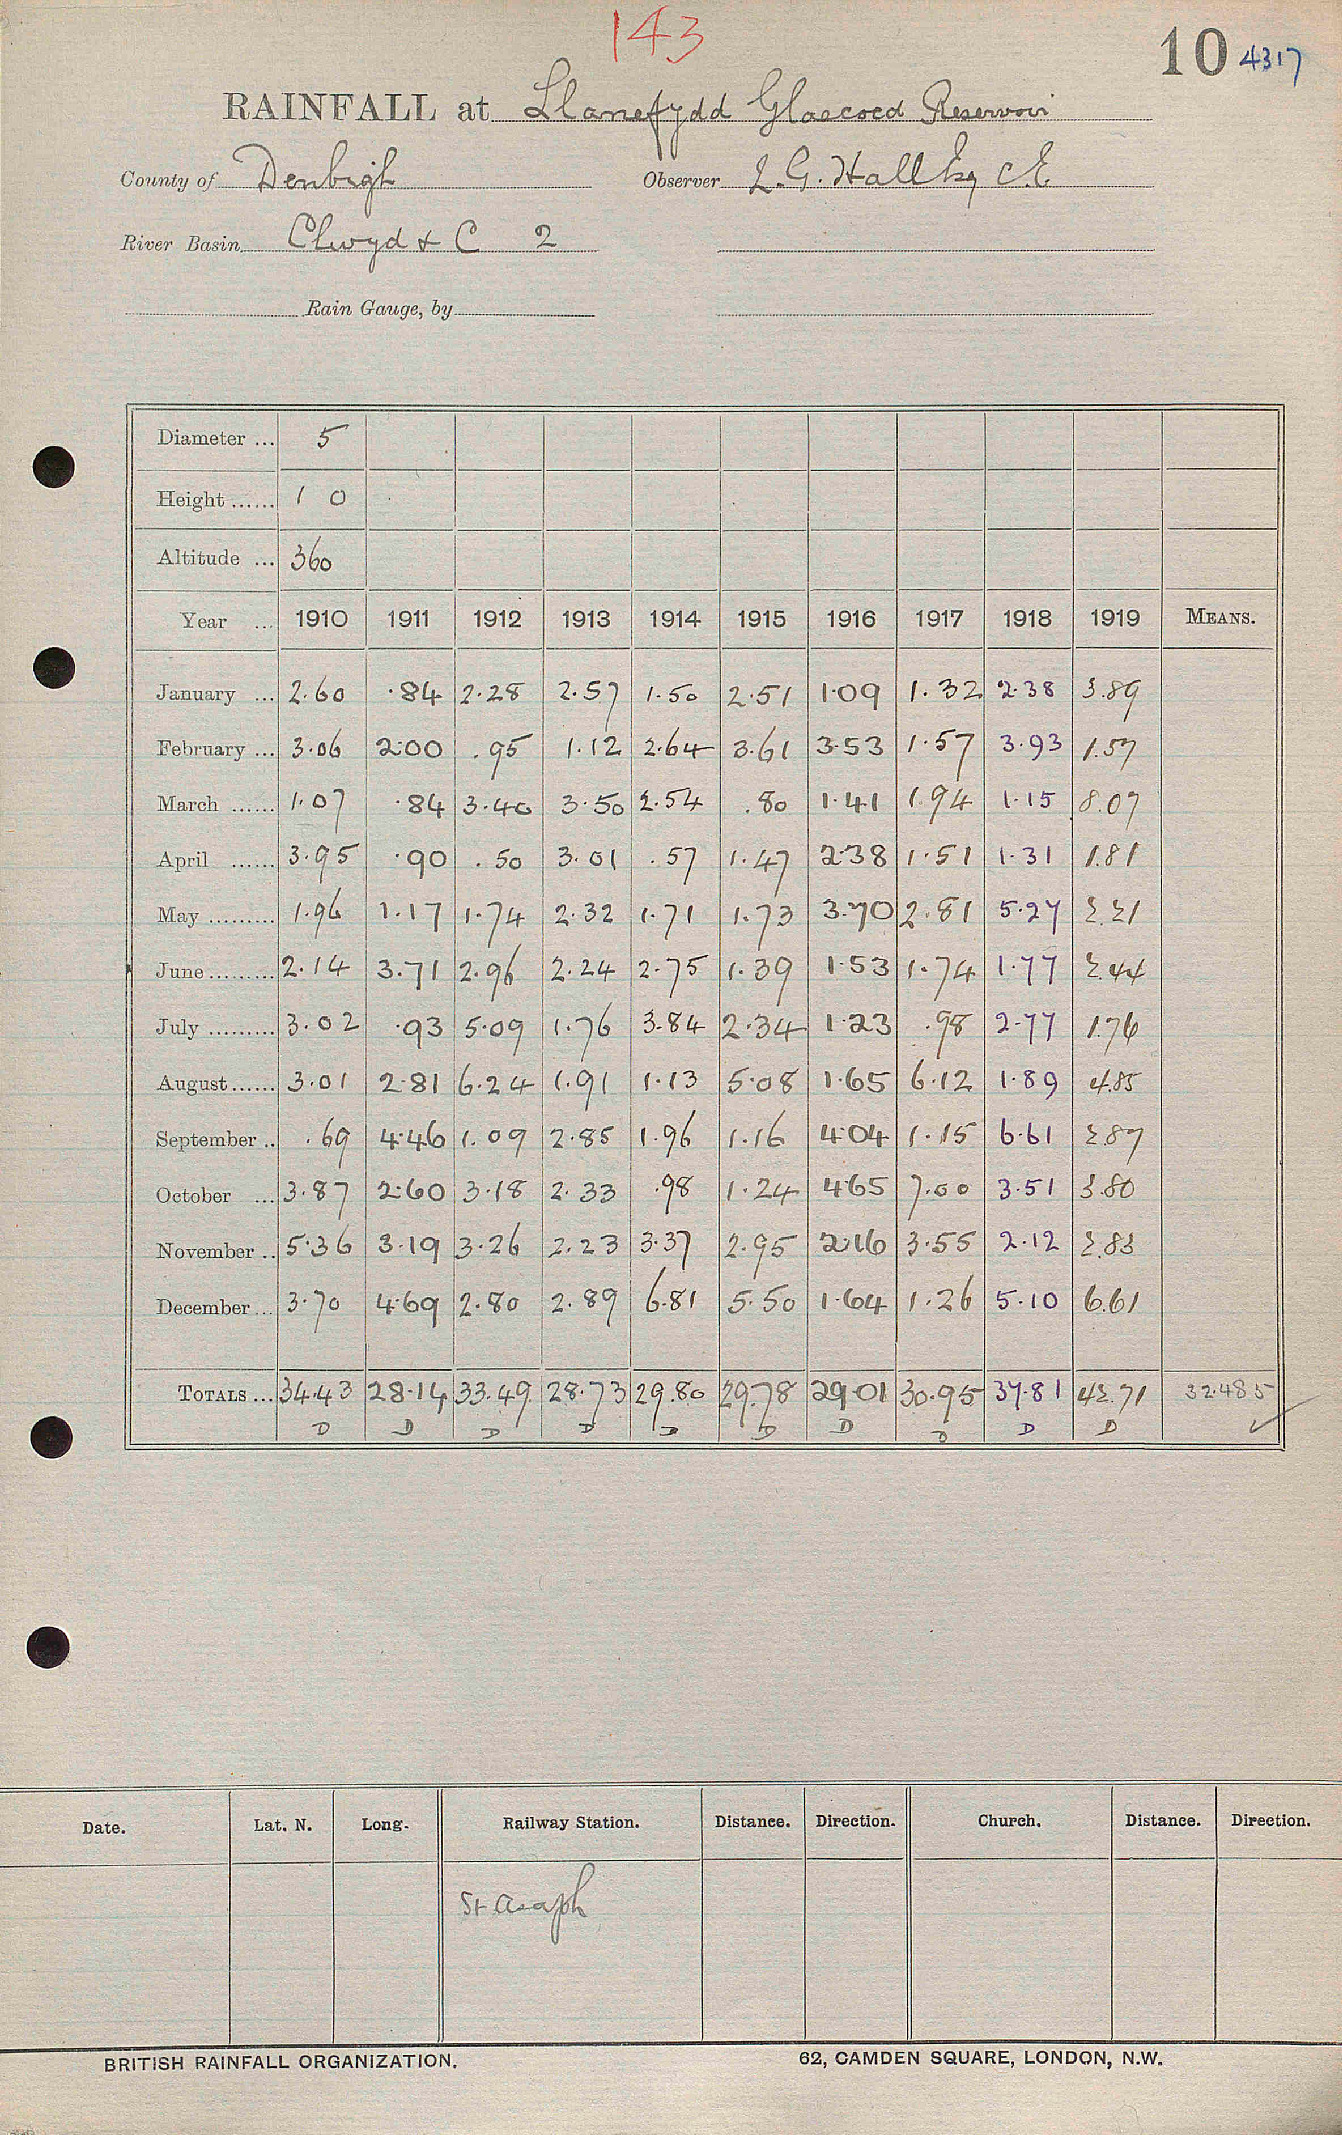 143
10 4317
RAINFALL at Llanefydd Glascoed Reservoir
County of Denbigh Observer L. G. Hall Esq C.E.
River Basin Clwyd & C 2
Rain Gauge, by
Diameter ... 5
Height ...... 1 0
Altitude ... 360
Year ... 1910 1911 1912 1913 1914 1915 1916 1917 1918 1919 MEANS.
January ... 2.60 .84 2.28 2.57 1.50 2.51 1.09 1.32 2.38 3.89
February ... 3.06 2.00 .95 1.12 2.64 3.61 3.53 1.57 3.93 1.57
March ...... 1.07 .84 3.40 3.50 2.54 .80 1.41 1.94 1.15 8.07
April ...... 3.95 .90 .50 3.01 .57 1.47 2.38 1.51 1.31 1.81
May ......... 1.96 1.17 1.74 2.32 1.71 1.73 3.70 2.81 5.27 2.21
June ......... 2.14 3.71 2.96 2.24 2.75 1.39 1.53 1.74 1.77 2.44
July ......... 3.02 .93 5.09 1.76 3.84 2.34 1.23 .98 2.77 1.76
August ...... 3.01 2.81 6.24 1.91 1.13 5.08 1.65 6.12 1.89 4.85
September .. .69 4.46 1.09 2.85 1.96 1.16 4.04 1.15 6.61 2.87
October ... 3.87 2.60 3.18 2.33 .98 1.24 4.65 7.00 3.51 3.80
November .. 5.36 3.19 3.26 2.23 3.37 2.95 2.16 3.55 2.12 2.83
December ... 3.70 4.69 2.80 2.89 6.81 5.50 1.64 1.26 5.10 6.61
TOTALS ... 34.43 28.14 33.49 28.73 29.80 29.78 29.01 30.95 37.81 42.71 32.485
D D D D D D D D D D ✓
Date. Lat. N. Long. Railway Station. Distance. Direction. Church. Distance. Direction.
St Asaph
BRITISH RAINFALL ORGANIZATION. 62, CAMDEN SQUARE, LONDON, N.W.